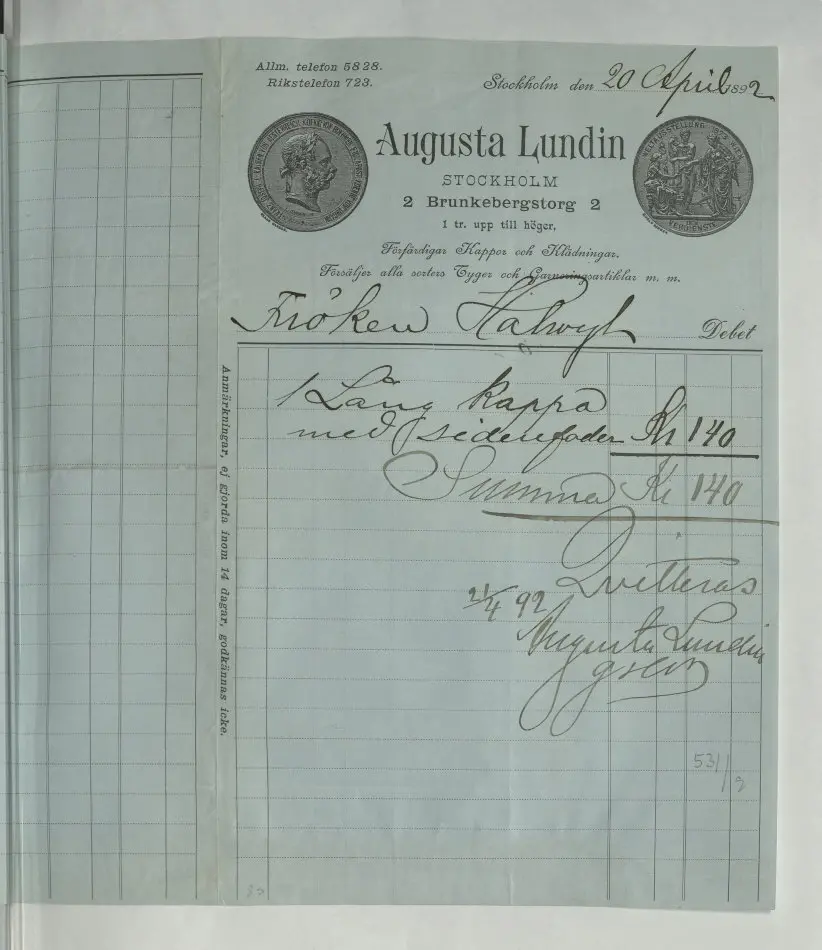 Allm. telefon 5828.
Rikstelefon 723.
Stockholm den 20 April 1892
Augusta Lundin
STOCKHOLM
2 Brunkebergstorg 2
1 tr. upp till höger.
Förfärdigar Kappor och Klädningar.
Försäljer alla sorters Tyger och Garneringsartiklar m. m.
Fröken Halwyl Debet
1 Lång kappa
med sidenfoder Kr 140
Summa Kr 140
Qvitteras
21/4 92
Augusta Lundin
Anmärkningar, ej gjorda inom 14 dagar, godkännas icke.
53